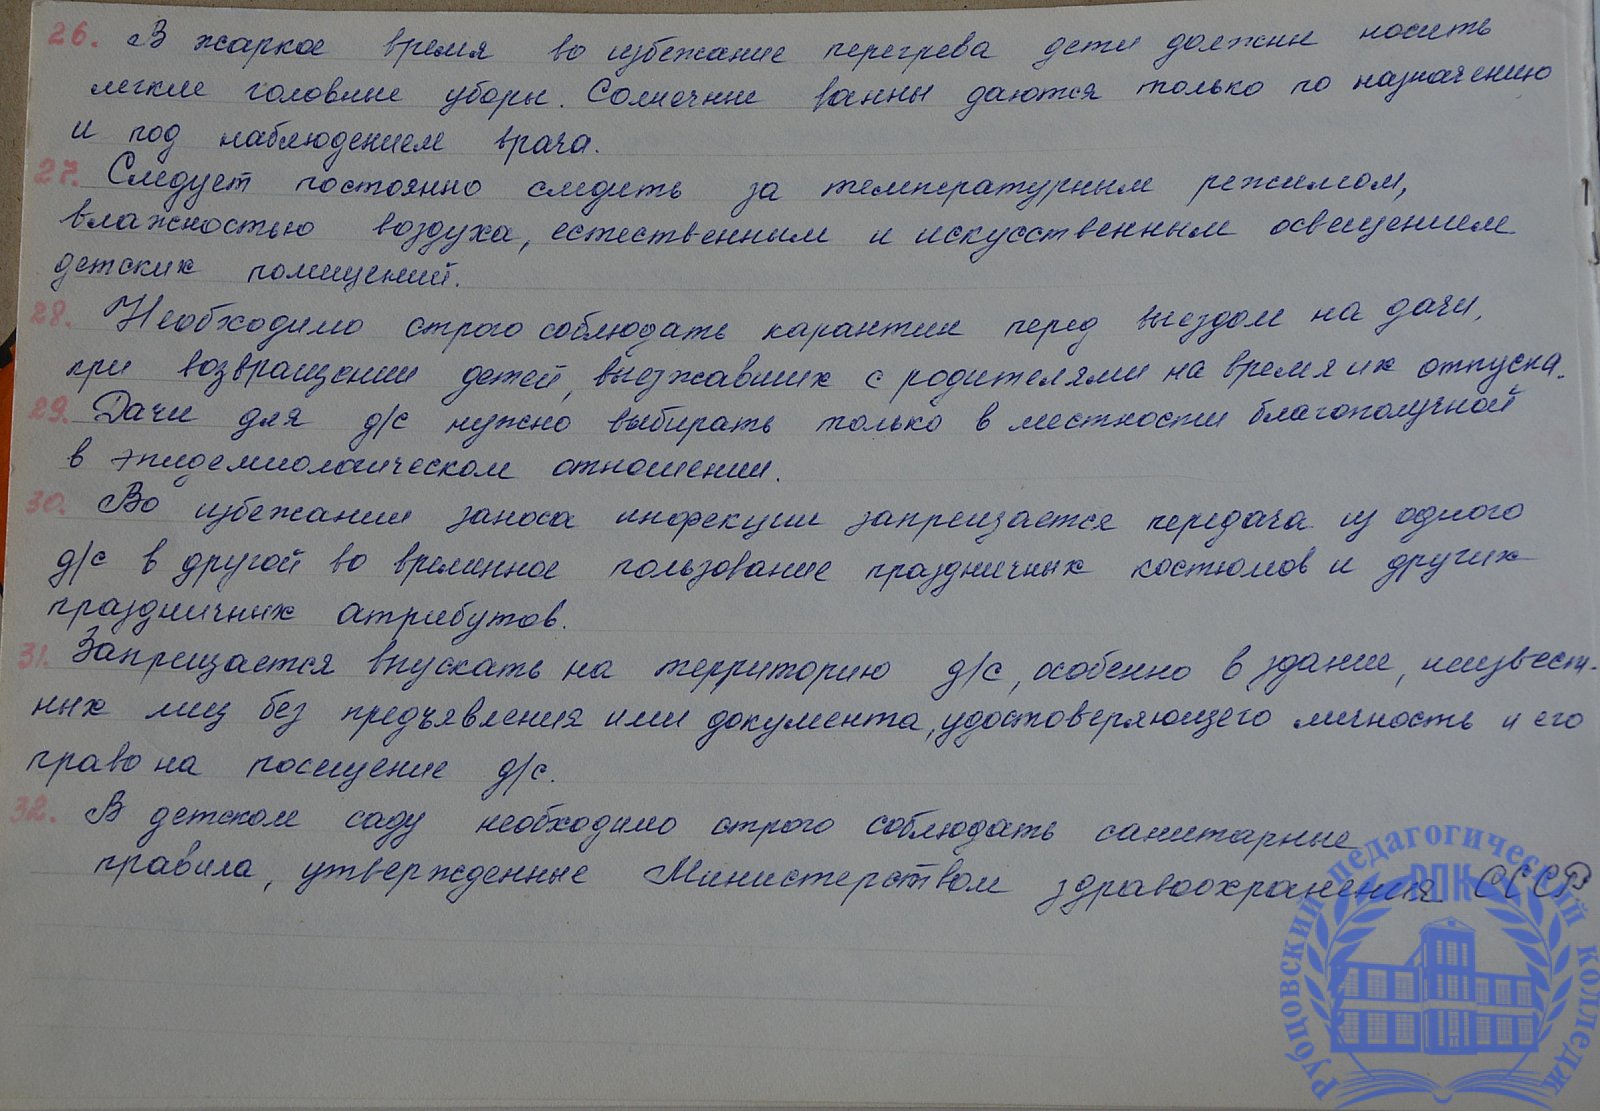 26. В жаркое время во избежание перегрева дети должны носить
легкие головные уборы. Солнечные ванны даются только по назначению
и под наблюдением врача.
27. Следует постоянно следить за температурным режимом,
влажностью воздуха, естественным и искусственным освещением
детских помещений.
28. Необходимо строго соблюдать карантин перед выездом на дачи,
при возвращении детей, выезжавших с родителями на время их отпуска.
29. Дачи для д/с нужно выбирать только в местности благополучной
в эпидемиологическом отношении.
30. Во избежании заноса инфекции запрещается передача из одного
д/с в другой во временное пользование праздничных костюмов и других
праздничных атрибутов.
31. Запрещается впускать на территорию д/с, особенно в здание, неизвест-
ных лиц без предъявления ими документа, удостоверяющего личность и его
право на посещение д/с.
32. В детском саду необходимо строго соблюдать санитарные
правила, утвержденные Министерством здравоохранения СССР
Рубцовский педагогический колледж
РПК